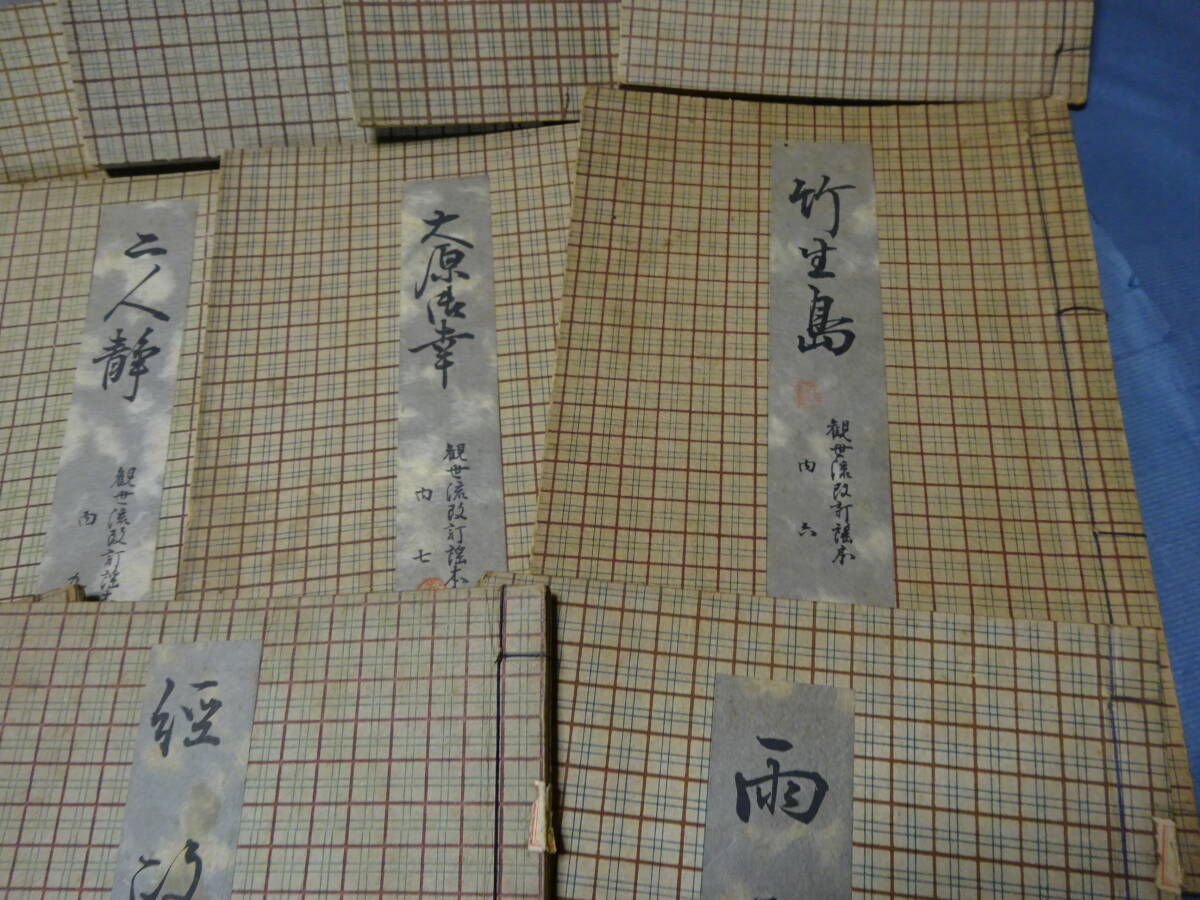 竹生島
観世流改訂謡本
内 六
大原御幸
観世流改訂謡本
内 七
二人静
観世流改訂謡本
内 九
雨
經政